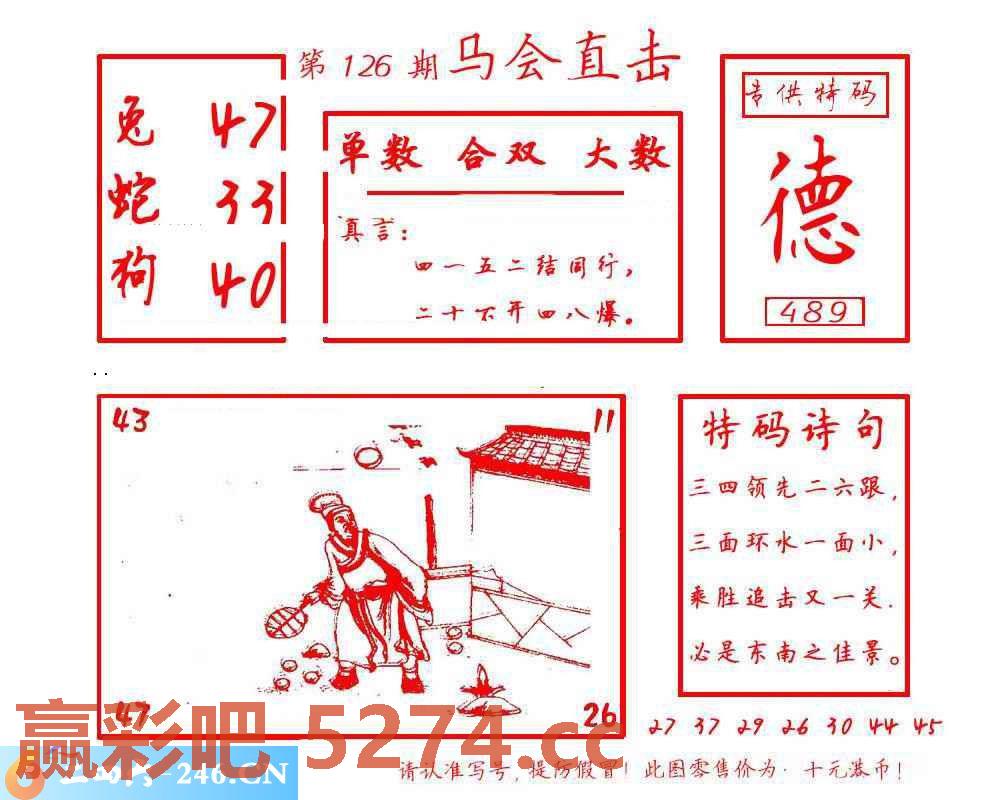 第 126 期 马会直击
兔 47
蛇 33
狗 40
单数 合双 大数
真言:
四一五二结同行,
二十不开四八爆。
专供特码
德
489
43
11
47
26
特码诗句
三四领先二六跟,
三面环水一面小,
乘胜追击又一关.
必是东南之佳景。
27 37 29 26 30 44 45
赢彩吧 5274.cc
246.CN
请认准写号,提防假冒!此图零售价为·十元港币!